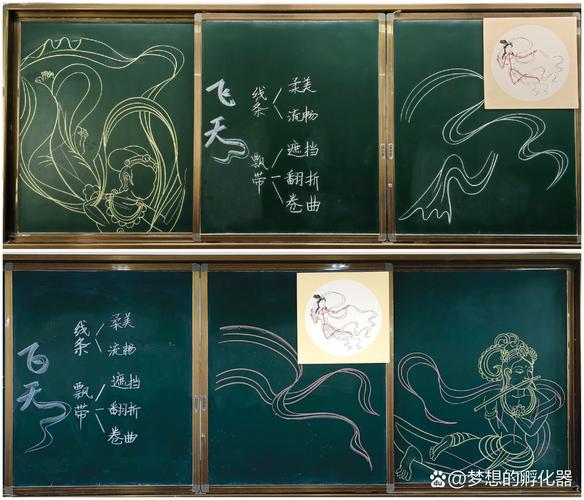 飞天
线条
柔美
流畅
飘带
遮挡
翻折
卷曲
飞天
线条
柔美
流畅
飘带
遮挡
翻折
卷曲
@梦想的孵化器